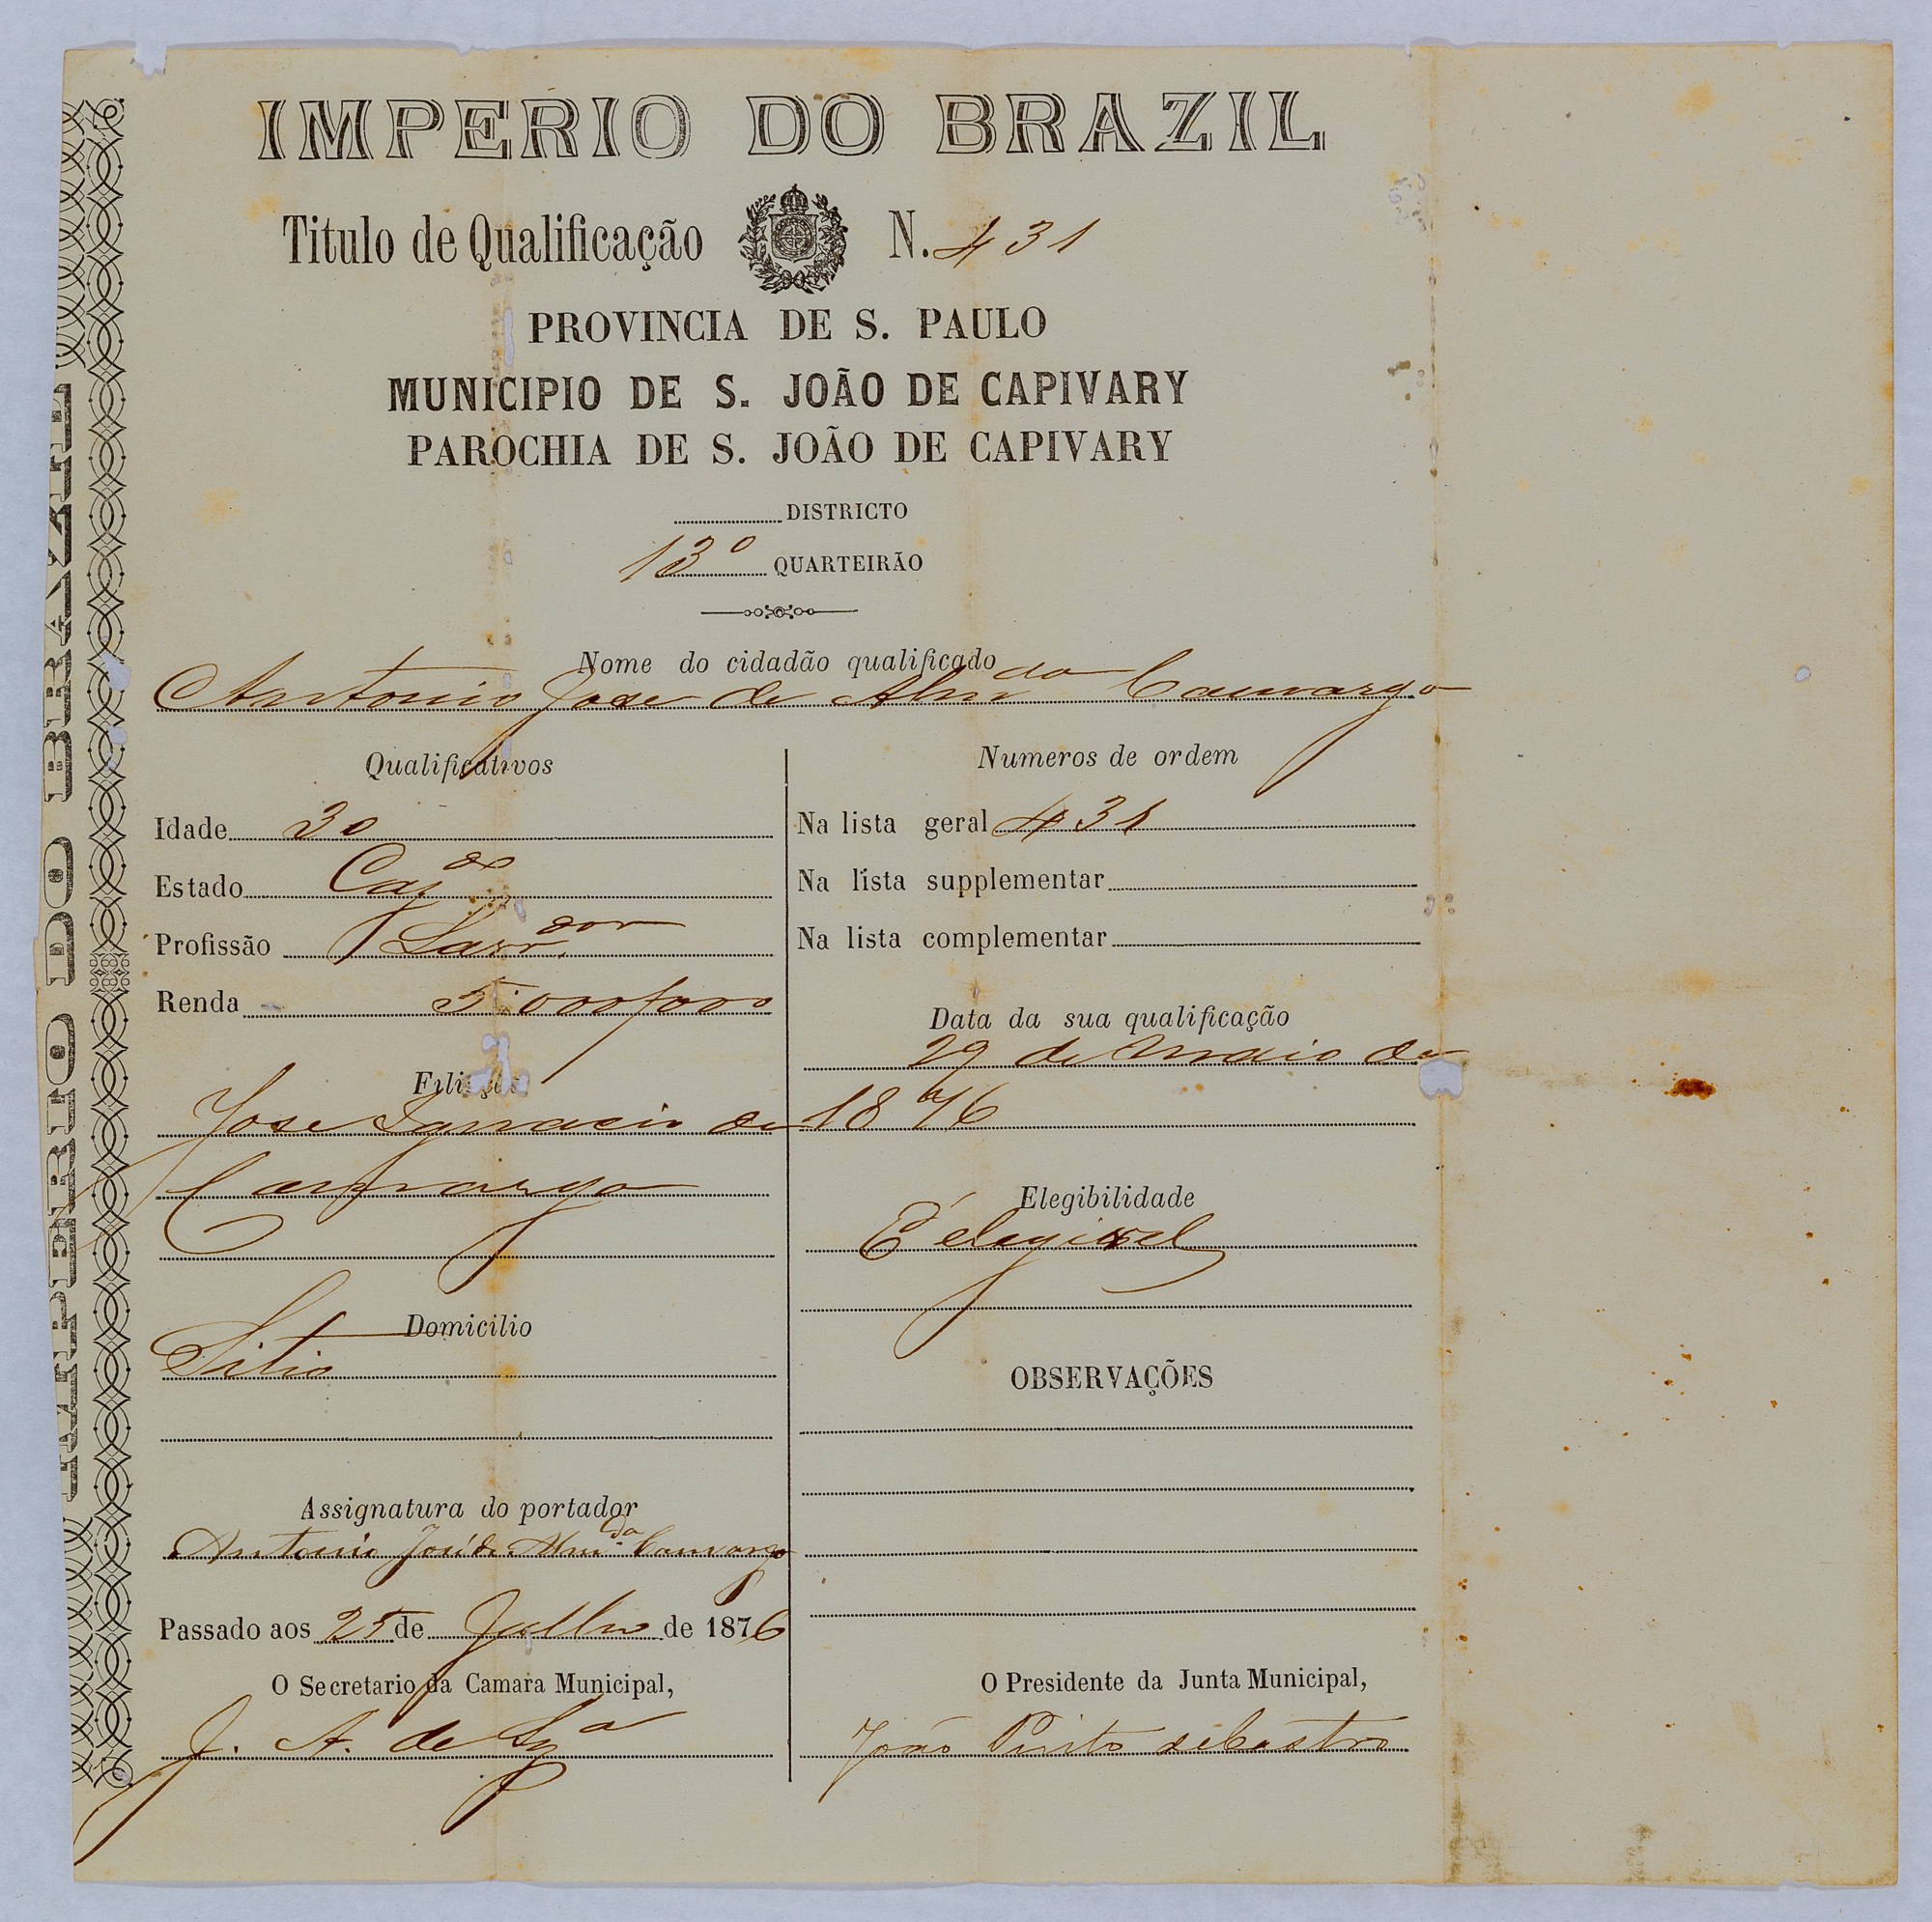 IMPERIO DO BRAZIL
Titulo de Qualificação N. 431
PROVINCIA DE S. PAULO
MUNICIPIO DE S. JOÃO DE CAPIVARY
PAROCHIA DE S. JOÃO DE CAPIVARY
DISTRICTO
13º QUARTEIRÃO
Nome do cidadão qualificado
Antonio Jose de Almda Camargo
Qualificativos
Idade 30
Estado Casdo
Profissão Lavrdor
Renda 5:000$000
Filiação
Jose Ignacio de
Camargo
Domicilio
Sitio
Assignatura do portador
Antonio José de Almda Camargo
Passado aos 25 de Julho de 1876
O Secretario da Camara Municipal,
J. A. de
Numeros de ordem
Na lista geral 431
Na lista supplementar
Na lista complementar
Data da sua qualificação
29 de Maio de
1876
Elegibilidade
É elegivel
OBSERVAÇÕES
O Presidente da Junta Municipal,
João
IMPERIO DO BRAZIL